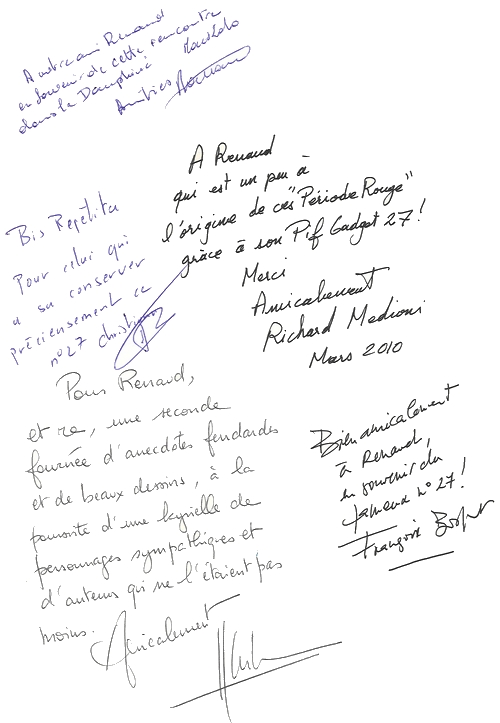 A notre ami Renaud
en souvenir de cette rencontre
dans le Dauphiné
Amitiés
A Renaud
qui est un peu à
l'origine de ces "Période Rouge"
grâce à son Pif Gadget 27!
Merci
Amicalement
Richard Medioni
Mars 2010
Bis Repetita
Pour celui qui
a su conserver
précieusement ce
n° 27 Christian
Pour Renaud,
et re, une seconde
fournée d'anecdotes fendardes
et de beaux dessins, à la
poursuite d'une kyrielle de
personnages sympathiques et
d'auteurs qui ne l'étaient pas
moins.
Amicalement
Bien amicalement
à Renaud,
en souvenir du
fameux n° 27!
François